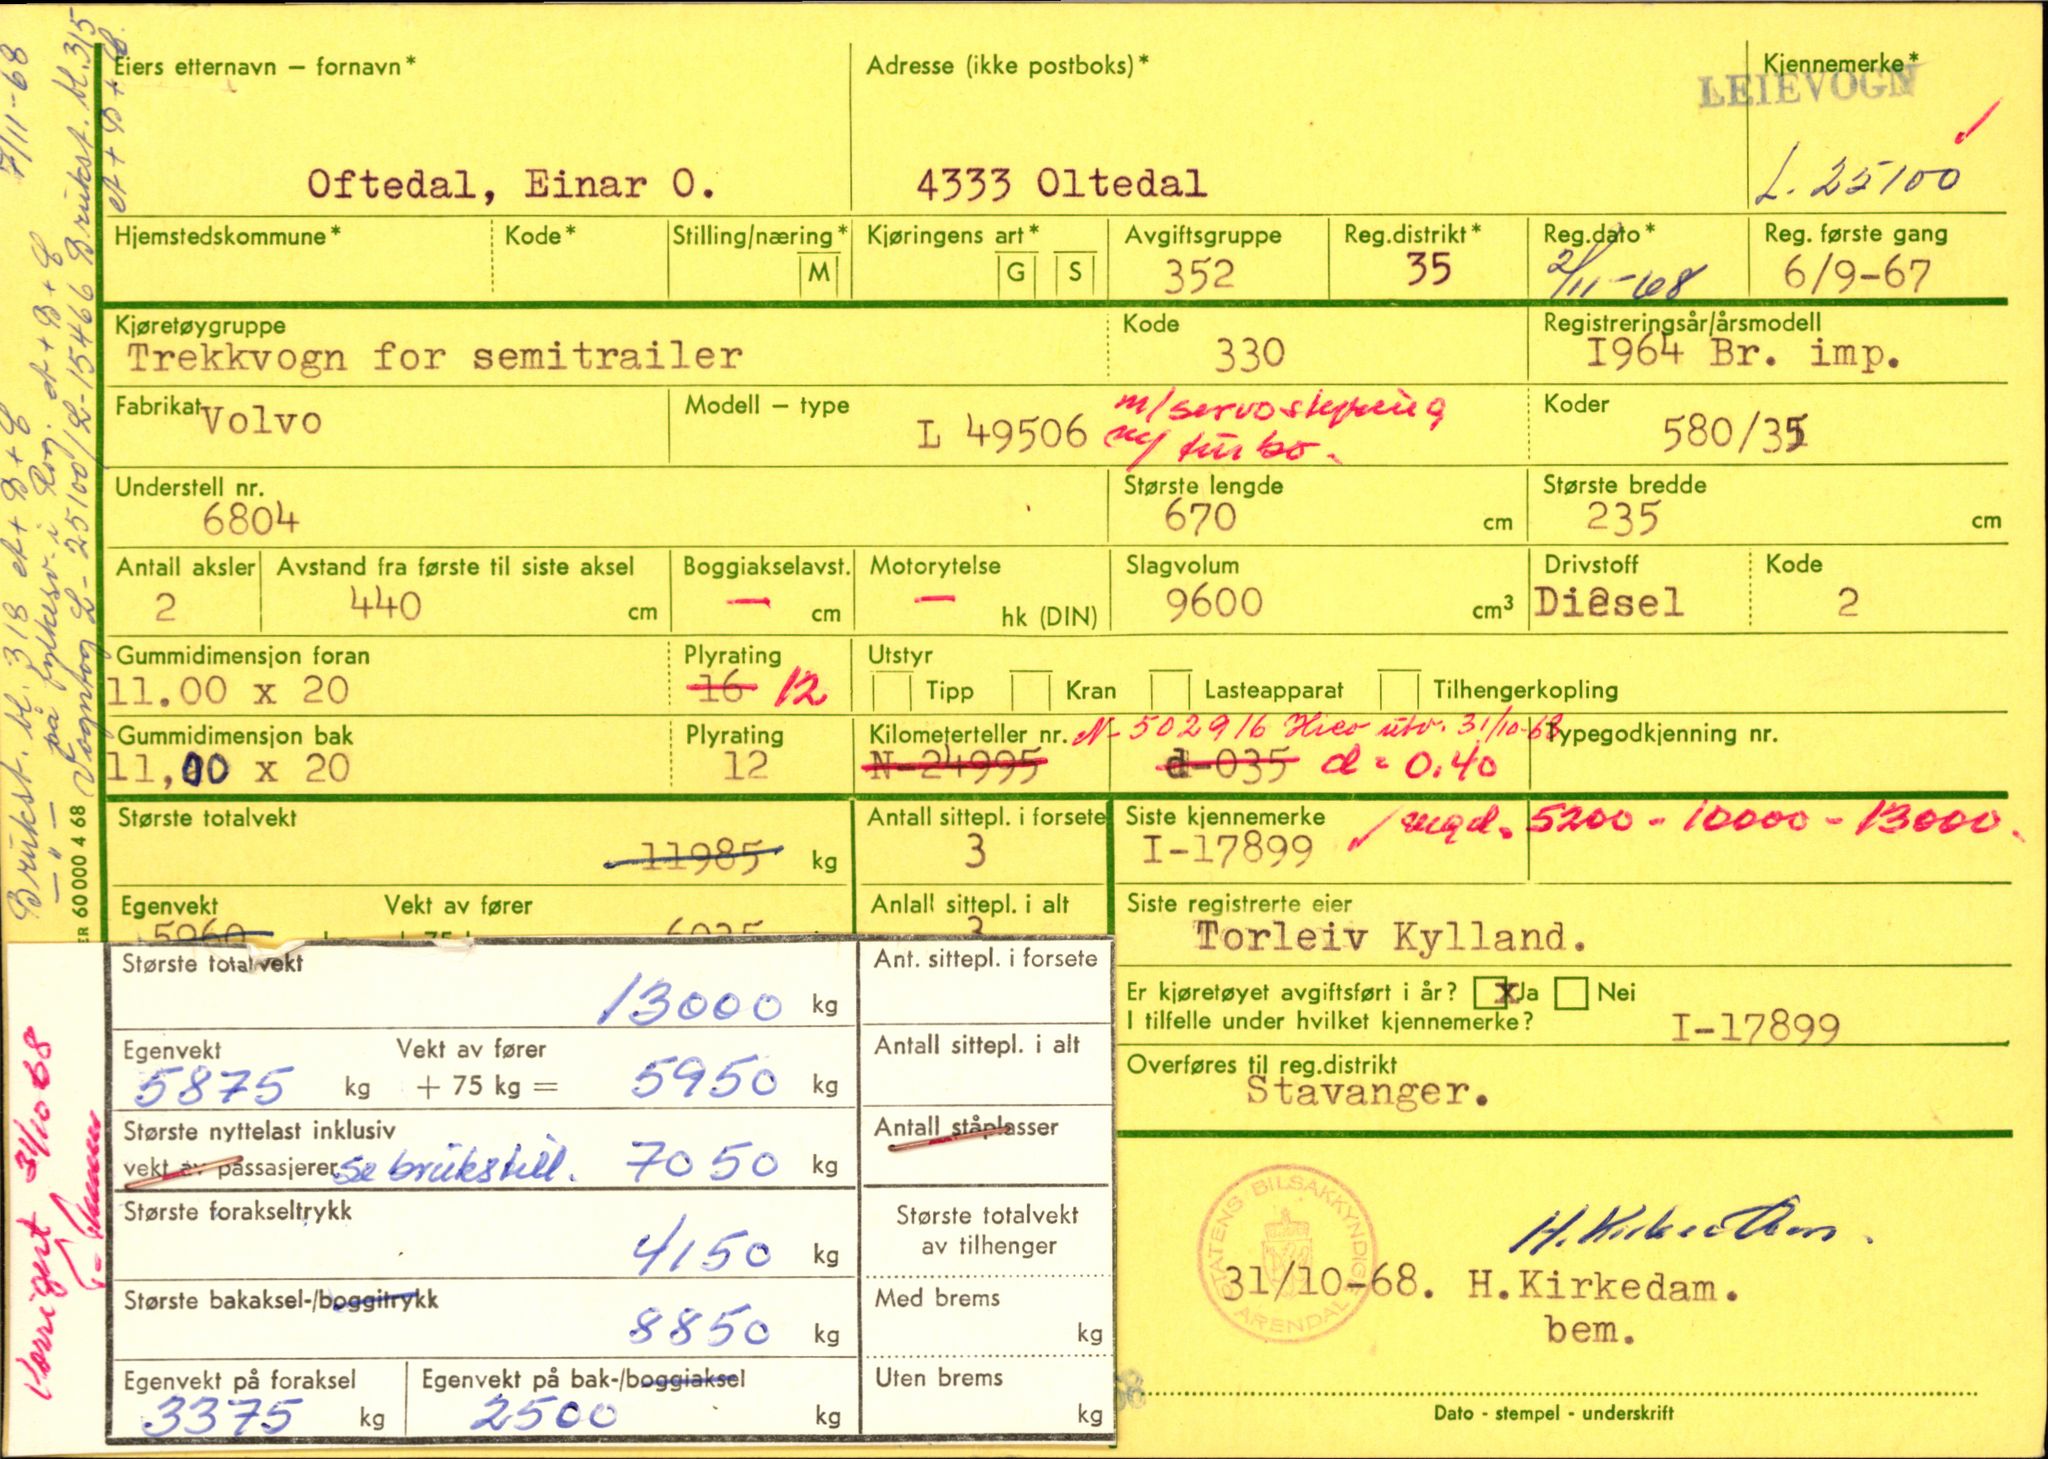 Eiers etternavn – fornavn*
Adresse (ikke postboks)*
Kjennemerke*
LEIEVOGN
Oftedal, Einar O.
4333 Oltedal
L. 25100
Hjemstedskommune*
Kode*
Stilling/næring*
M
Kjøringens art*
G
S
Avgiftsgruppe
352
Reg.distrikt*
35
Reg.dato*
2/11-68
Reg. første gang
6/9-67
Kjøretøygruppe
Trekkvogn for semitrailer
Kode
330
Registreringsår/årsmodell
I964 Br. imp.
Fabrikat
Volvo
Modell – type
L 49506
m/servostyring
m/turbo.
Koder
580/35
Understell nr.
6804
Største lengde
670 cm
Største bredde
235 cm
Antall aksler
2
Avstand fra første til siste aksel
440 cm
Boggiakselavst.
— cm
Motorytelse
— hk (DIN)
Slagvolum
9600 cm³
Drivstoff
Diesel
Kode
2
Gummidimensjon foran
11.00 x 20
Plyrating
16 12
Utstyr
Tipp
Kran
Lasteapparat
Tilhengerkopling
Gummidimensjon bak
11,00 x 20
Plyrating
12
Kilometerteller nr.
N-502916
31/10-68
N-24995
d-035 d = 0.40
Typegodkjenning nr.
Største totalvekt
11985 kg
Antall sittepl. i forsete
3
Siste kjennemerke
I-17899
/ 5200 - 10000 - 13000.
Egenvekt
5960
Vekt av fører
6035
Antall sittepl. i alt
3
Siste registrerte eier
Torleiv Kylland.
Er kjøretøyet avgiftsført i år? x Ja Nei
I tilfelle under hvilket kjennemerke?
I-17899
Overføres til reg.distrikt
Stavanger.
Største totalvekt
13000 kg
Ant. sittepl. i forsete
Egenvekt
5875 kg
Vekt av fører
+ 75 kg = 5950 kg
Antall sittepl. i alt
Største nyttelast inklusiv
vekt av passasjerer se brukstill. 7050 kg
Antall ståplasser
Største forakseltrykk
4150 kg
Største totalvekt
av tilhenger
Største bakaksel-/boggitrykk
8850 kg
Med brems
kg
Egenvekt på foraksel
3375 kg
Egenvekt på bak-/boggiaksel
2500 kg
Uten brems
kg
STATENS BILSAKKYNDIGE
ARENDAL
31/10-68. H.Kirkedam.
bem.
Dato - stempel - underskrift
Brukst. bl. 318 et + B + E
— " — på fylkesv. i Rog. et + B + E 7/11-68
Vogntog L-25100/L-15466 Brukst. bl. 315
et + B + E.
60 000 4 68
Korrigert 31/10 68